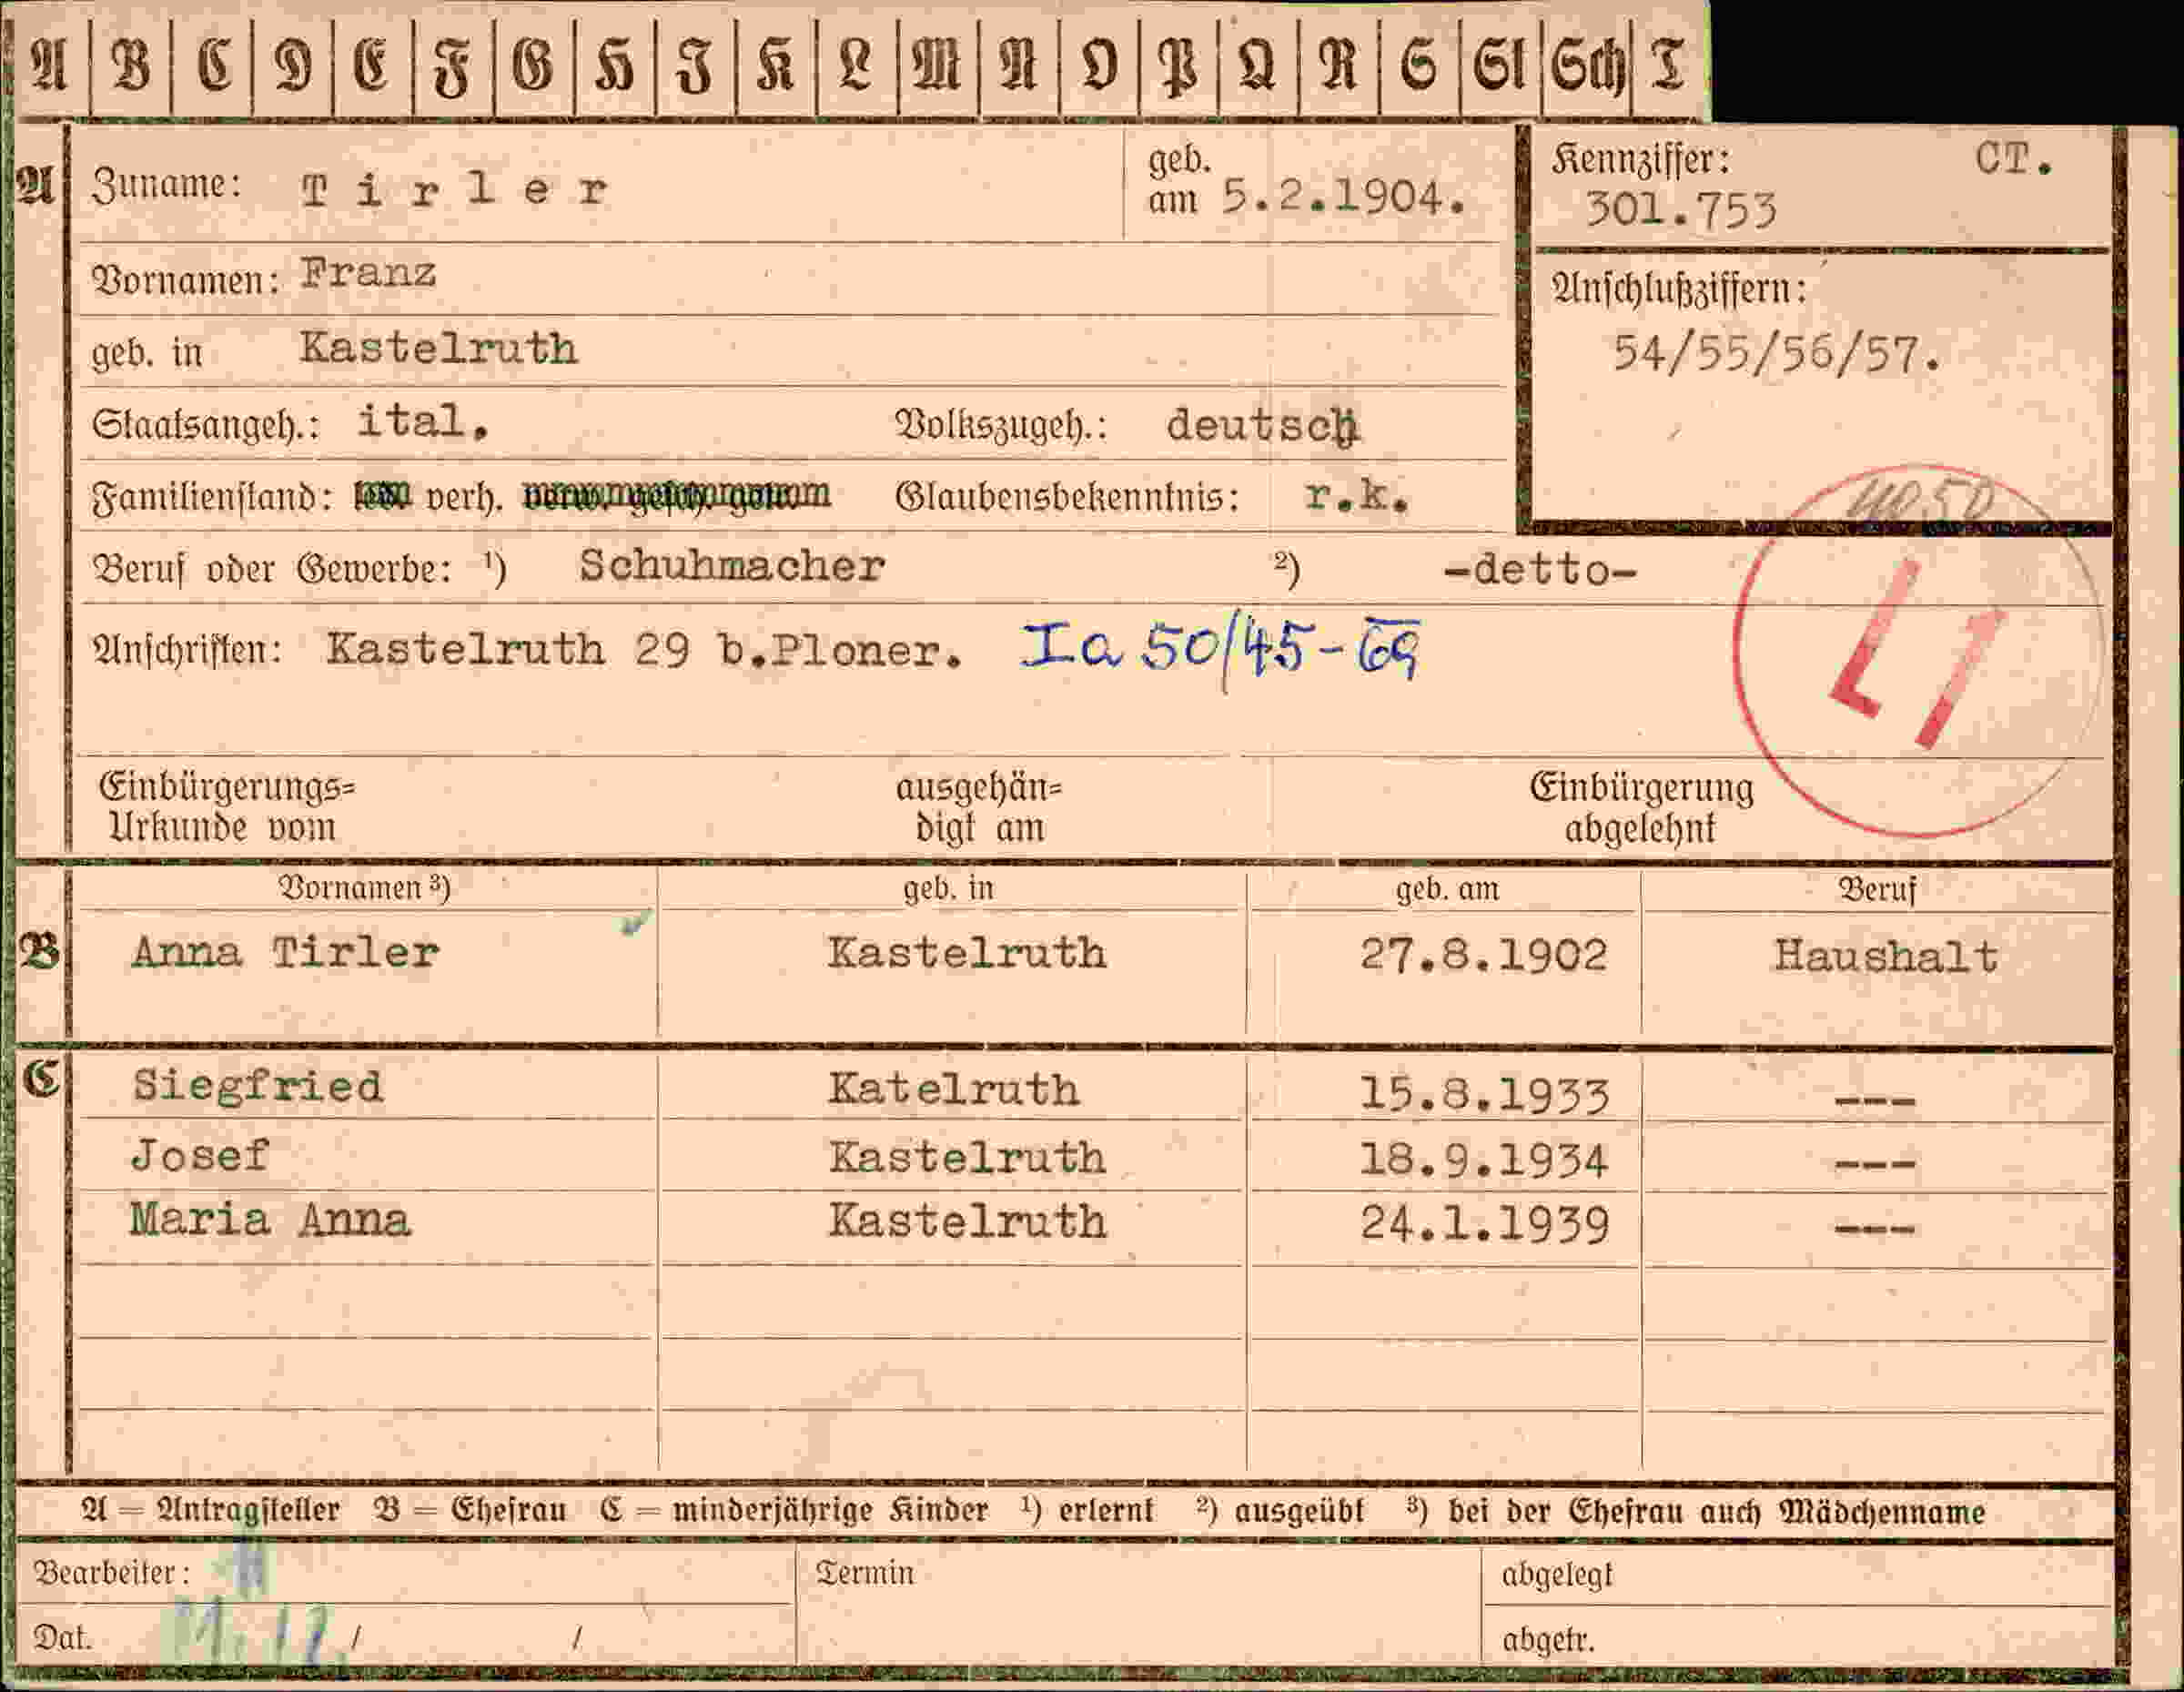 A B C D E F G H J K L M N O P Q R S St Sch T
A Zuname: Tirler geb. am 5.2.1904. Kennziffer: CT. 301.753
Vornamen: Franz
Anschlußziffern:
geb. in Kastelruth 54/55/56/57.
Staatsangeh.: ital. Volkszugeh.: deutsch
Familienstand: verh. Glaubensbekenntnis: r.k.
Beruf oder Gewerbe: 1) Schuhmacher 2) -detto-
Anschriften: Kastelruth 29 b.Ploner. Ia 50/45-69
Einbürgerungs= ausgehän= Einbürgerung
Urkunde vom digt am abgelehnt
Vornamen 3) geb. in geb. am Beruf
B Anna Tirler Kastelruth 27.8.1902 Haushalt
C Siegfried Katelruth 15.8.1933 ---
Josef Kastelruth 18.9.1934 ---
Maria Anna Kastelruth 24.1.1939 ---
A = Antragsteller B = Ehefrau C = minderjährige Kinder 1) erlernt 2) ausgeübt 3) bei der Ehefrau auch Mädchenname
Bearbeiter: Termin abgelegt
Dat. / / abgetr.